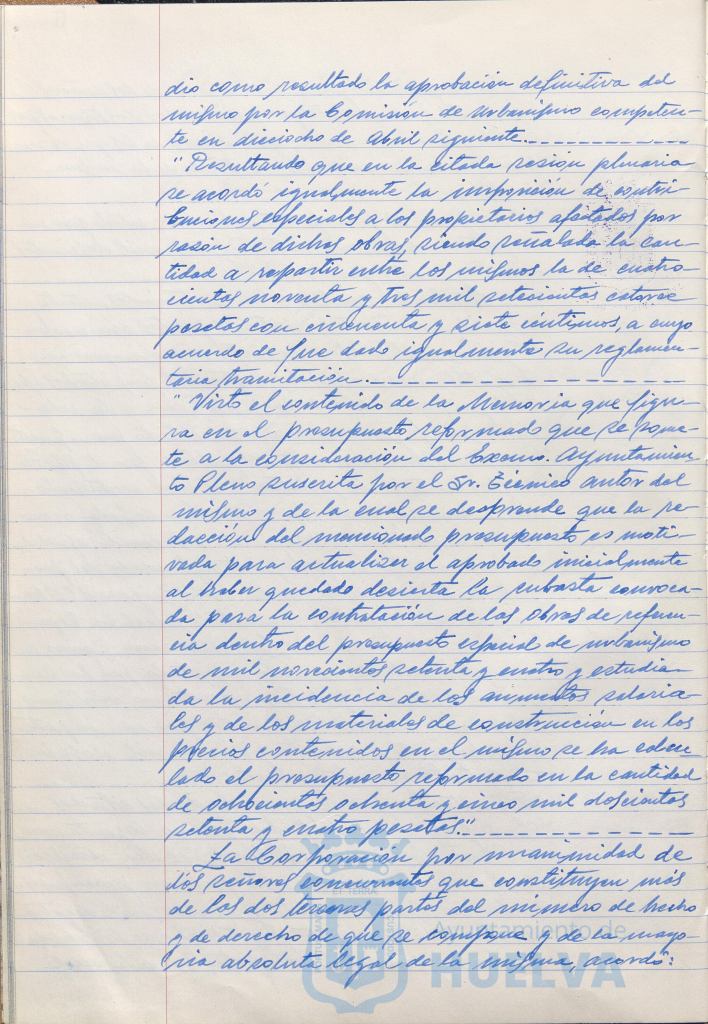 dio como resultado la aprobación definitiva del
mismo por la Comisión de Urbanismo competen-
te en dieciocho de Abril siguiente.
"Resultando que en la citada sesión plenaria
se acordó igualmente la imposición de contri-
buciones especiales a los propietarios afectados por
razón de dichas obras, siendo señalada la can-
tidad a repartir entre los mismos la de cuatro-
cientas noventa y tres mil setecientas catorce
pesetas con cincuenta y siete céntimos, a cuyo
acuerdo de fue dado igualmente su reglamen-
taria tramitación.
"Visto el contenido de la Memoria que figu-
ra en el presupuesto reformado que se some-
te a la consideración del Excmo. Ayuntamien-
to Pleno suscrita por el Sr. Técnico autor del
mismo y de la cual se desprende que la re-
dacción del mencionado presupuesto es moti-
vada para actualizar el aprobado inicialmente
al haber quedado desierta la subasta convoca-
da para la contratación de las obras de referen-
cia dentro del presupuesto especial de urbanismo
de mil novecientos setenta y cuatro y estudia-
da la incidencia de los aumentos salaria-
les y de los materiales de construcción en los
precios contenidos en el mismo se ha calcu-
lado el presupuesto reformado en la cantidad
de ochocientas ochenta y cinco mil doscientas
setenta y cuatro pesetas."
La Corporación por unanimidad de
los señores concurrentes que constituyen más
de las dos terceras partes del número de hecho
y de derecho de que se compone y de la mayo-
ría absoluta legal de la misma, acordó:
Ayuntamiento de
HUELVA